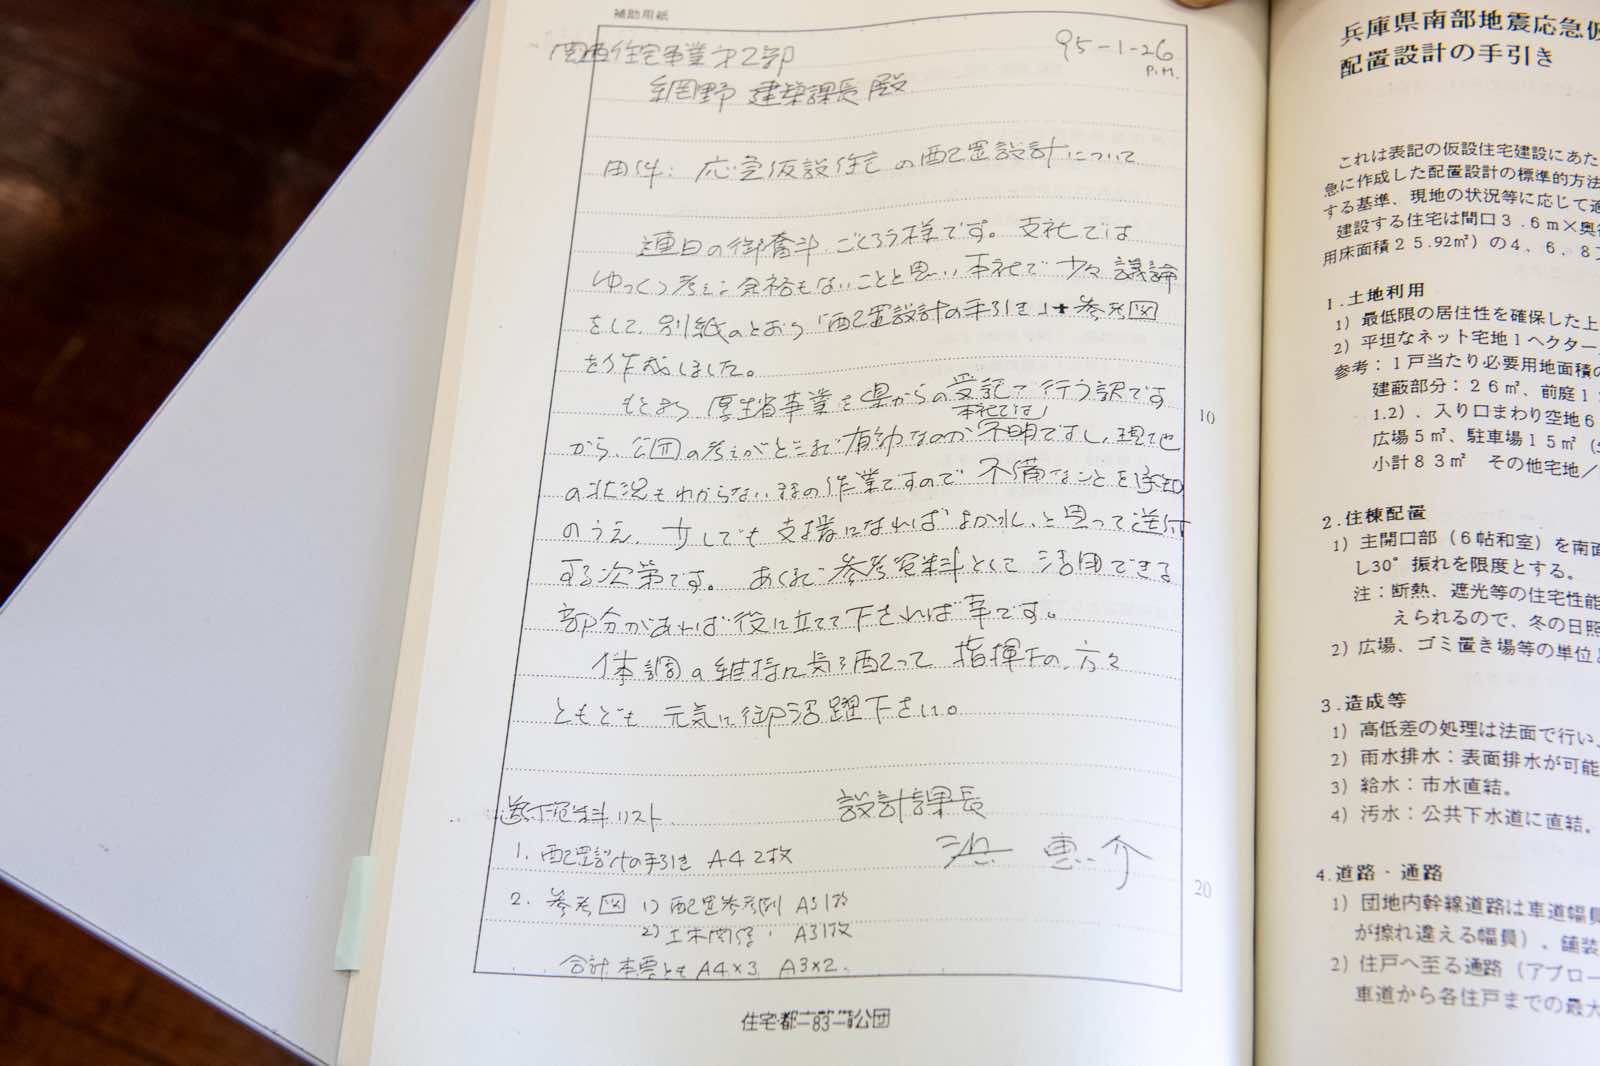 補助用紙
関西住宅事業才2部
95-1-26
P.M.
網野 建築課長殿
用件: 応急仮設住宅の配置設計について
連日の御奮斗、ごくろう様です。支社では
ゆっくり考える余裕もないことと思い、本社で少々議論
をして、別紙のとおり「配置設計の手引き」+参考図
を作成しました。
もとより厚生省事業を県からの受託で行う訳です
本社では
から、公団の考えがどこまで有効なのか不明ですし、現地
の状況もわからないままの作業ですので不備なことを承知
のうえ、少しでも支援になればよかれ、と思って送付
する次第です。あくまで参考資料として活用できる
部分があれば役に立てて下されば幸です。
体調の維持に気を配って指揮下の方々
ともども元気に御活躍下さい。
設計課長
恵介
送付資料リスト
1. 配置設計の手引き A4 2枚
2. 参考図 1) 配置参考例 A3 1枚
2) 土木関係 A3 1枚
合計 本票とも A4×3 A3×2
10
20
住宅都
83
公団
兵庫県南部地震応急仮
配置設計の手引き
これは表記の仮設住宅建設にあた
急に作成した配置設計の標準的方法
する基準、現地の状況等に応じて適
建設する住宅は間口3.6m×奥行
用床面積25.92㎡)の4、6、8
1.土地利用
1)最低限の居住性を確保した上
2)平坦なネット宅地1ヘクター
参考:1戸当たり必要用地面積の
建蔽部分:26㎡、前庭1
1.2)、入り口まわり空地6
広場5㎡、駐車場15㎡
小計83㎡ その他宅地/
2.住棟配置
1)主開口部(6帖和室)を南面
し30°振れを限度とする。
注:断熱、遮光等の住宅性能
えられるので、冬の日照
2)広場、ゴミ置き場等の単位と
3.造成等
1)高低差の処理は法面で行い、
2)雨水排水:表面排水が可能
3)給水:市水直結。
4)汚水:公共下水道に直結。
4.道路・通路
1)団地内幹線道路は車道幅員
が擦れ違える幅員)、舗装
2)住戸へ至る通路(アプロー
車道から各住戸までの最大